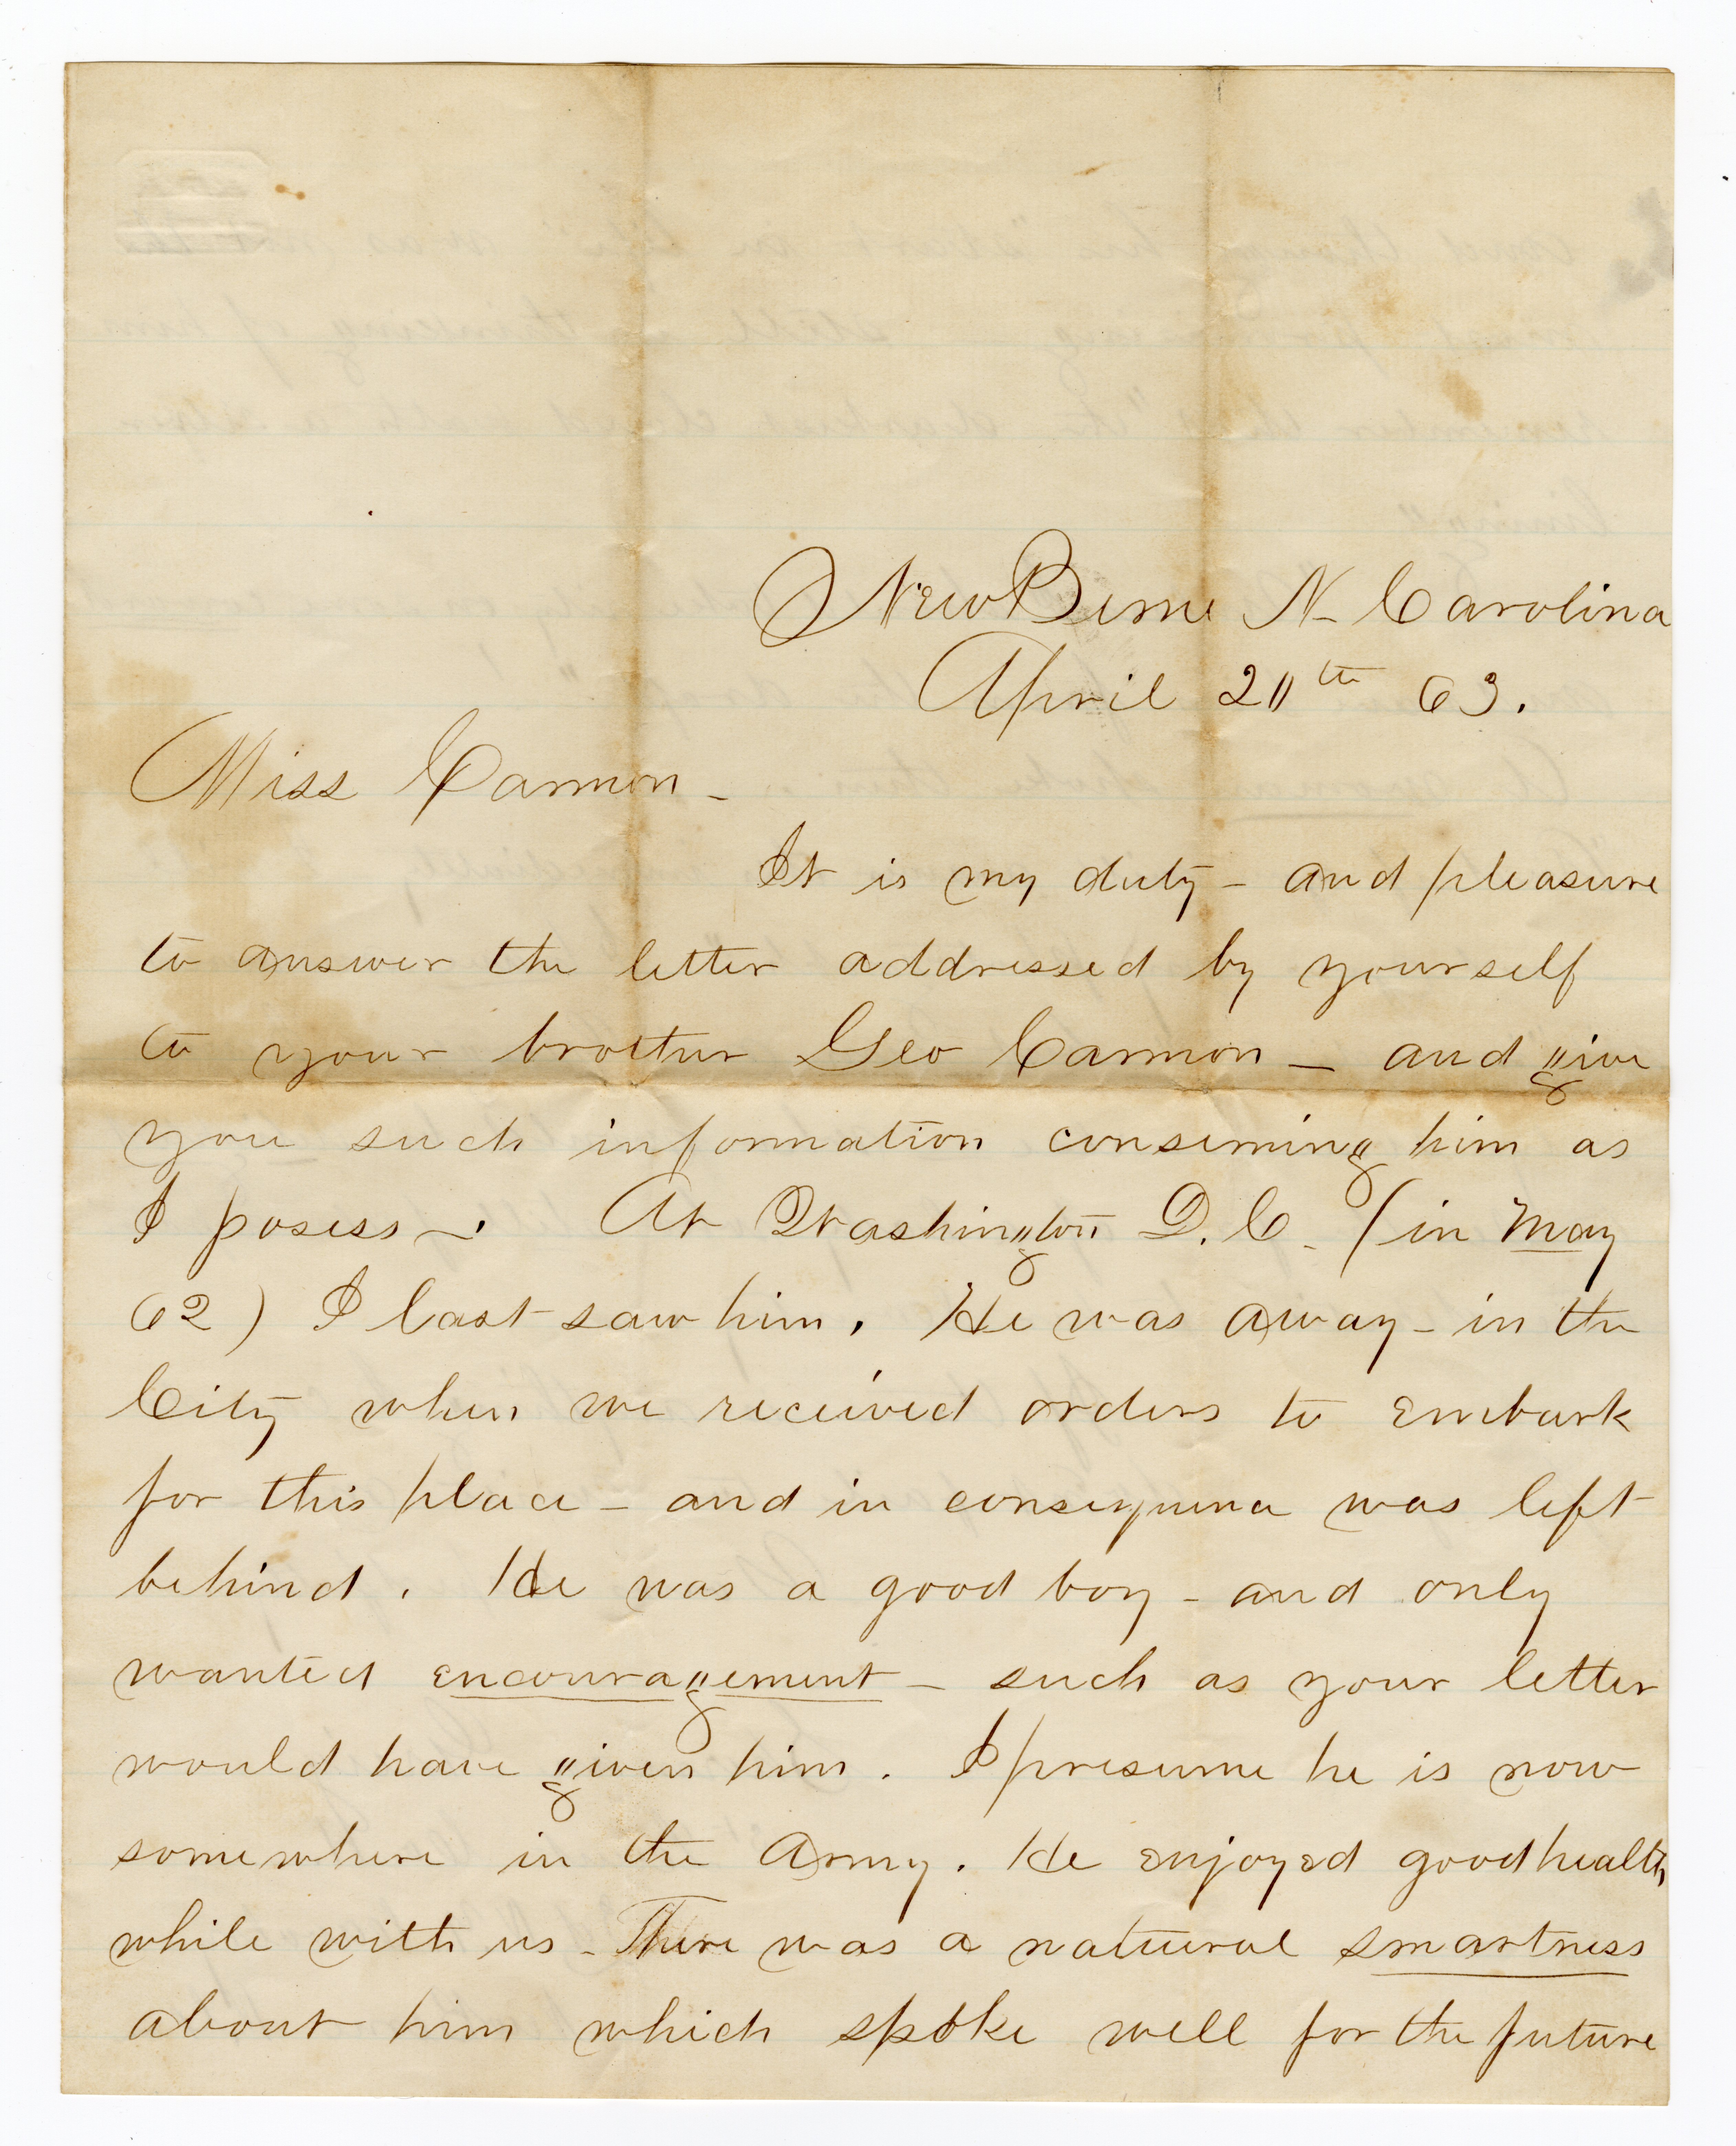 NewBerne N. Carolina
April 20th 63.
Miss Carmon -
It is my duty - and pleasure
to answer the letter addressed by yourself
to your brother Geo Carmon - and give
you such information conserning him as
I posess -. At Washington D.C. (in May
62) I last saw him. He was away - in the
City when we received orders to embark
for this place - and in consequence was left
behind. He was a good boy - and only
wanted encouragement - such as your letter
would have given him. I presume he is now
somewhere in the Army. He enjoyed good health
while with us - There was a natural smartness
about him which spoke well for the future